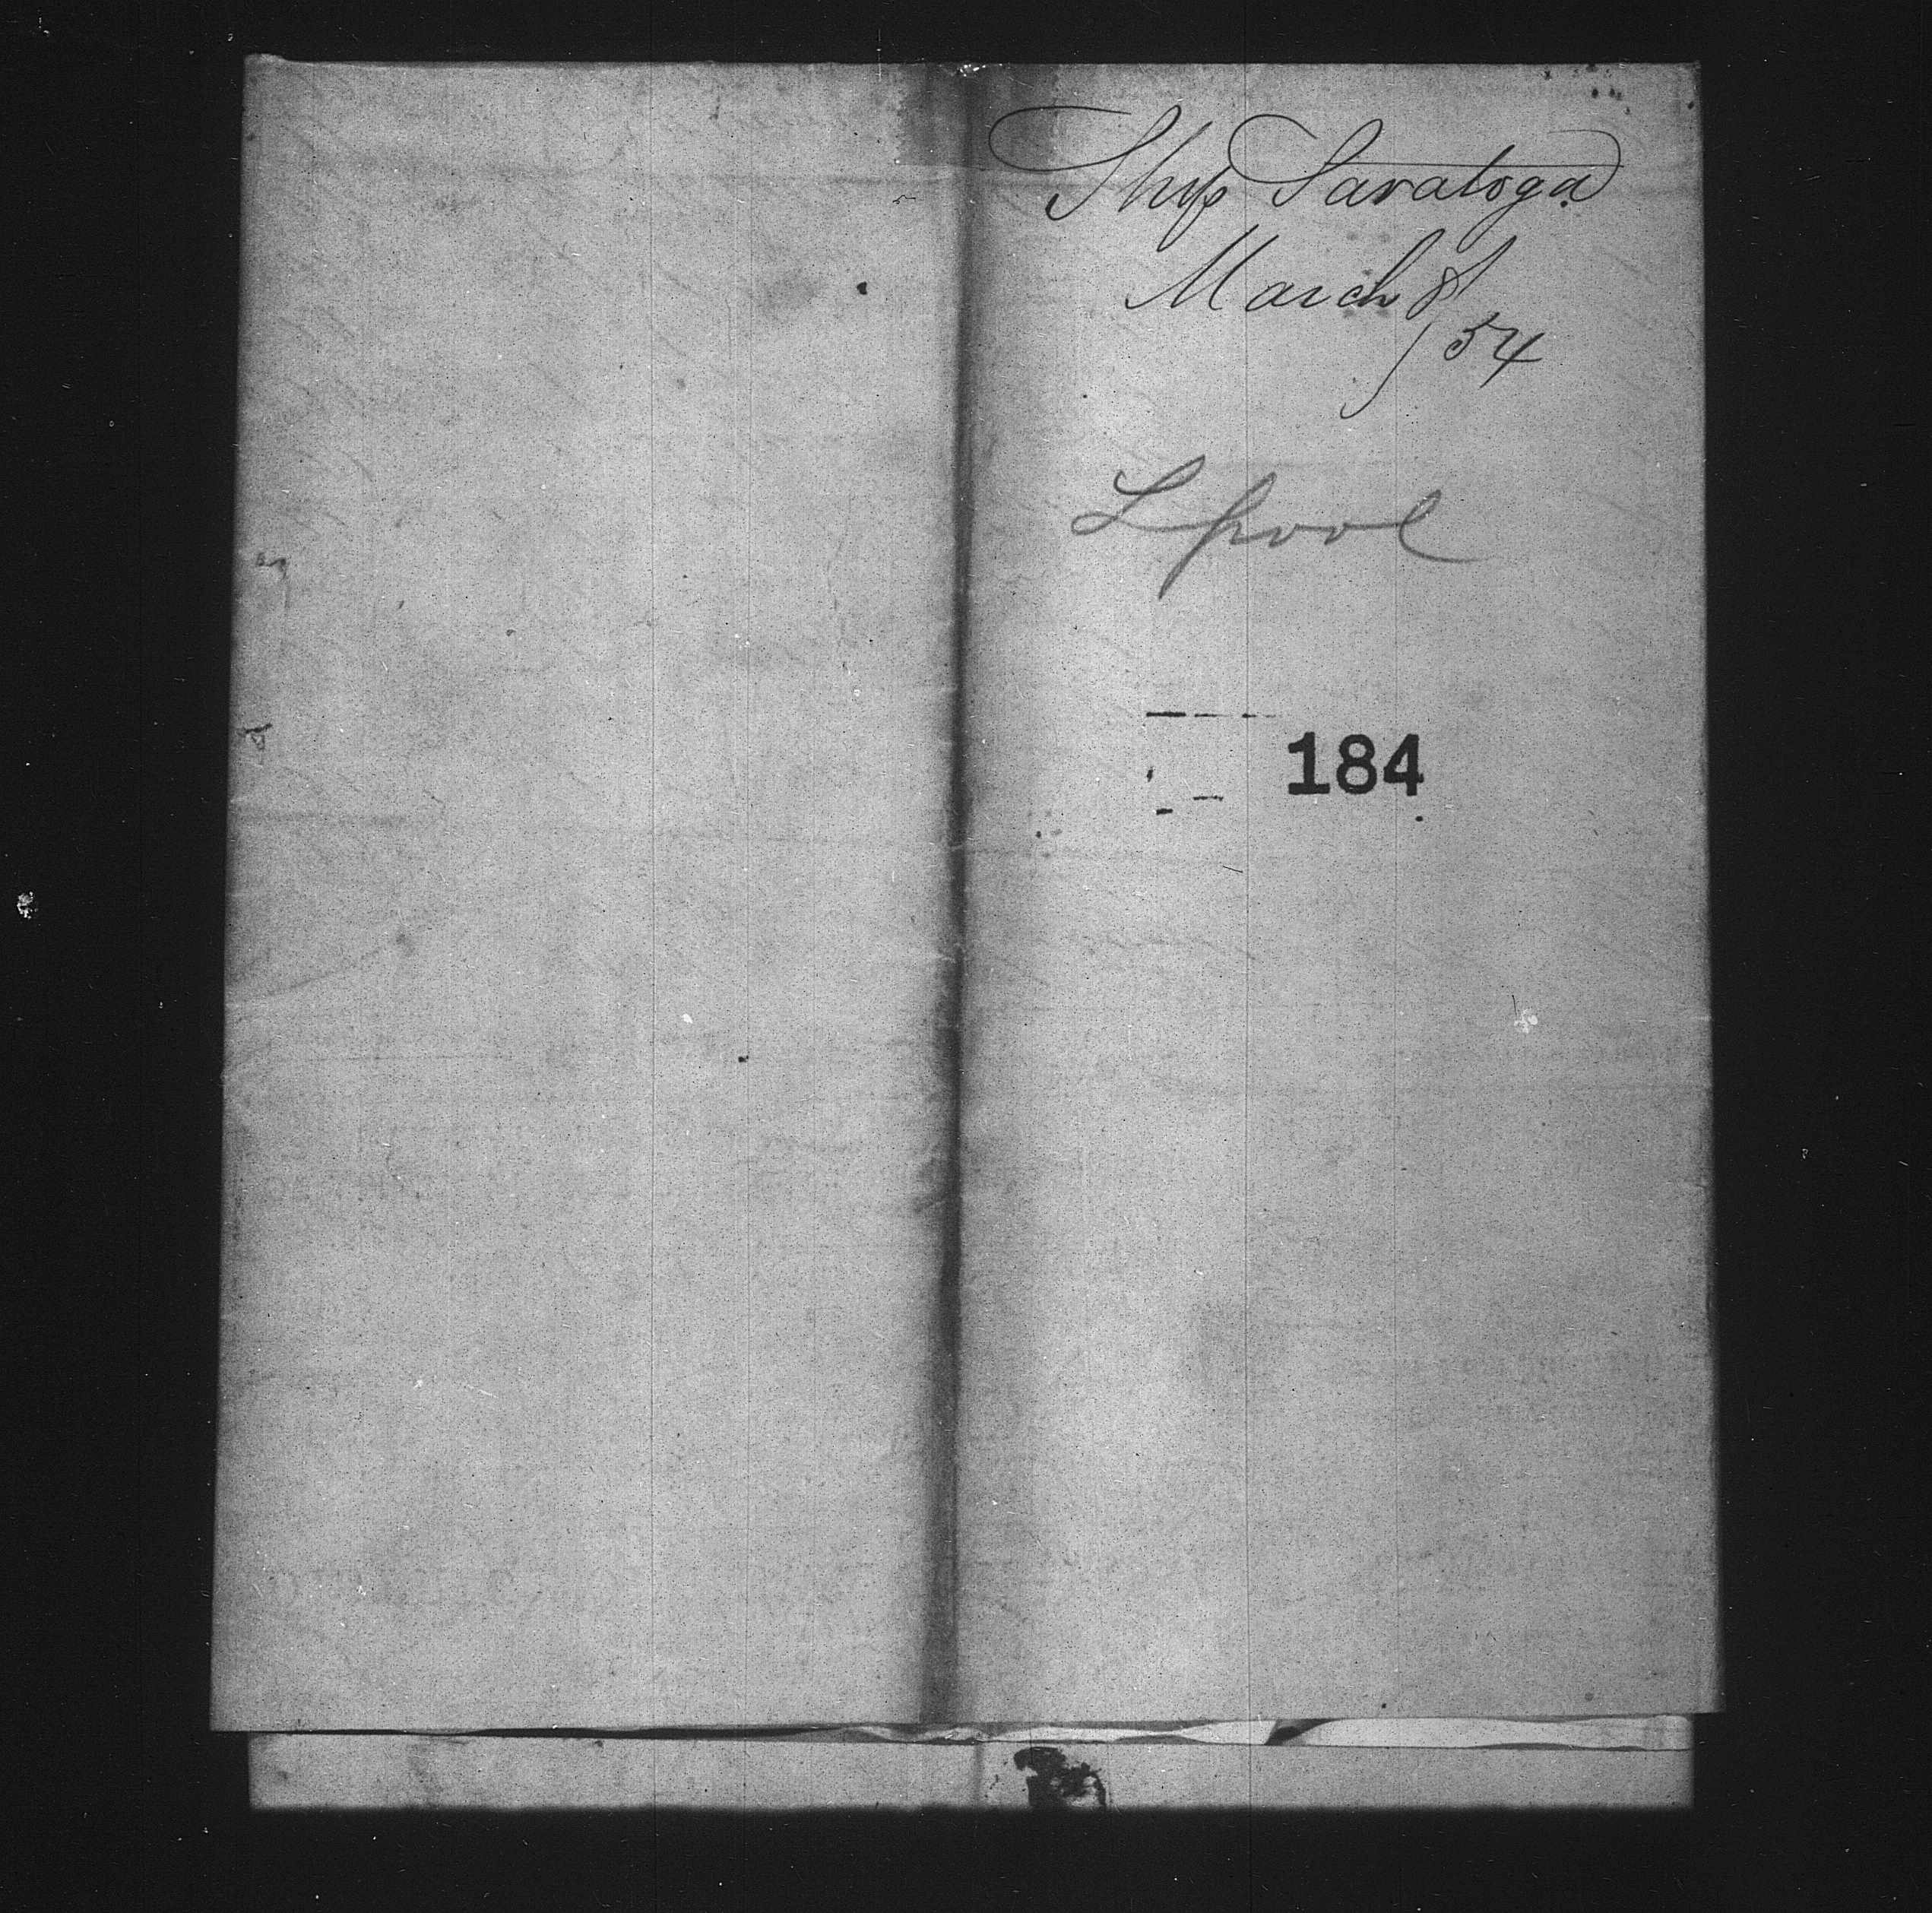 Ship Saratoga
March 8/
54
L pool
184